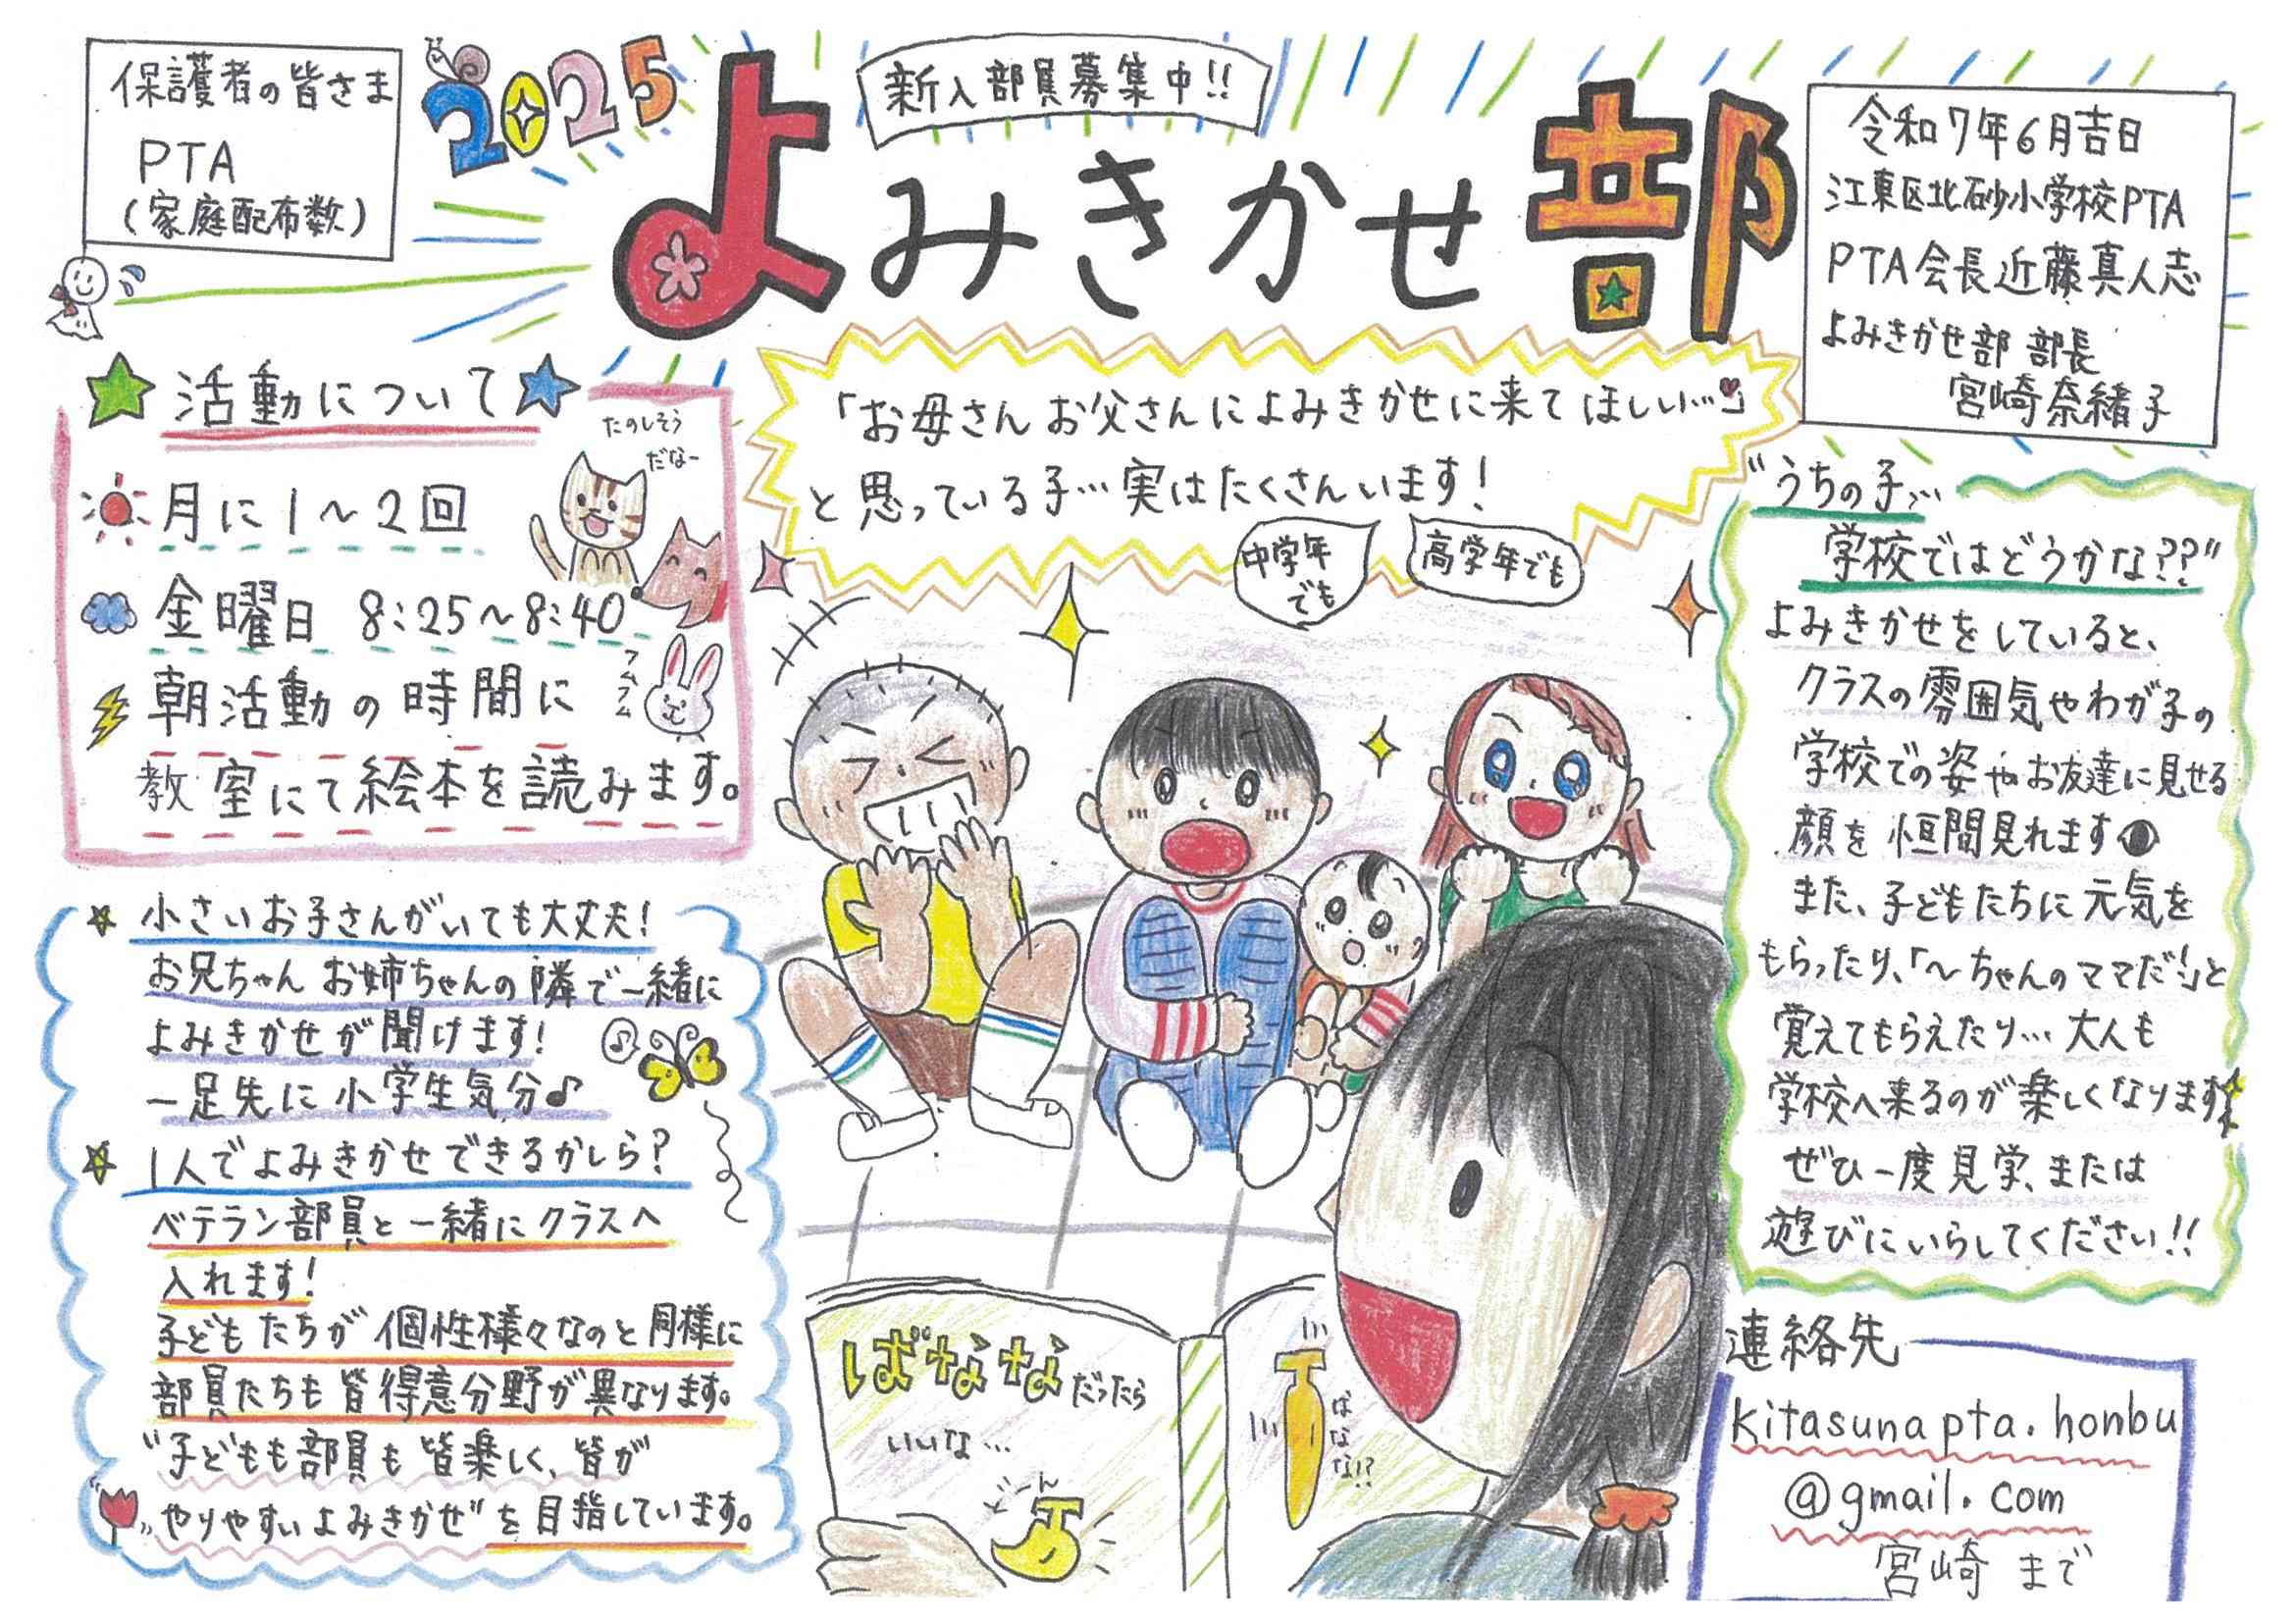 保護者の皆さま
PTA
（家庭配布数）
2025
新入部員募集中!!
よみきかせ部
令和7年6月吉日
江東区北砂小学校PTA
PTA会長 近藤真人志
よみきかせ部 部長
宮崎奈緒子
活動について
月に1〜2回
金曜日 8:25〜8:40
朝活動の時間に
教室にて絵本を読みます。
たのしそう
だなー
フムフム
「お母さんお父さんによみきかせに来てほしい…」
と思っている子…実はたくさんいます!
中学年
でも
高学年でも
小さいお子さんがいても大丈夫!
お兄ちゃんお姉ちゃんの隣で一緒に
よみきかせが聞けます!
一足先に小学生気分♪
♪
1人でよみきかせできるかしら?
ベテラン部員と一緒にクラスへ
入れます!
子どもたちが個性様々なのと同様に
部員たちも皆得意分野が異なります。
"子どもも部員も皆楽しく、皆が
やりやすいよみきかせ"を目指しています。
ばななだったら
いいな…
ばなな!?
"うちの子…
学校ではどうかな??"
よみきかせをしていると、
クラスの雰囲気やわが子の
学校での姿やお友達に見せる
顔を恒間見れます
また、子どもたちに元気を
もらったり、「〜ちゃんのママだ!」と
覚えてもらえたり…大人も
学校へ来るのが楽しくなります
ぜひ一度見学、または
遊びにいらしてください!!
連絡先
kitasunapta.honbu
@gmail.com
宮崎まで